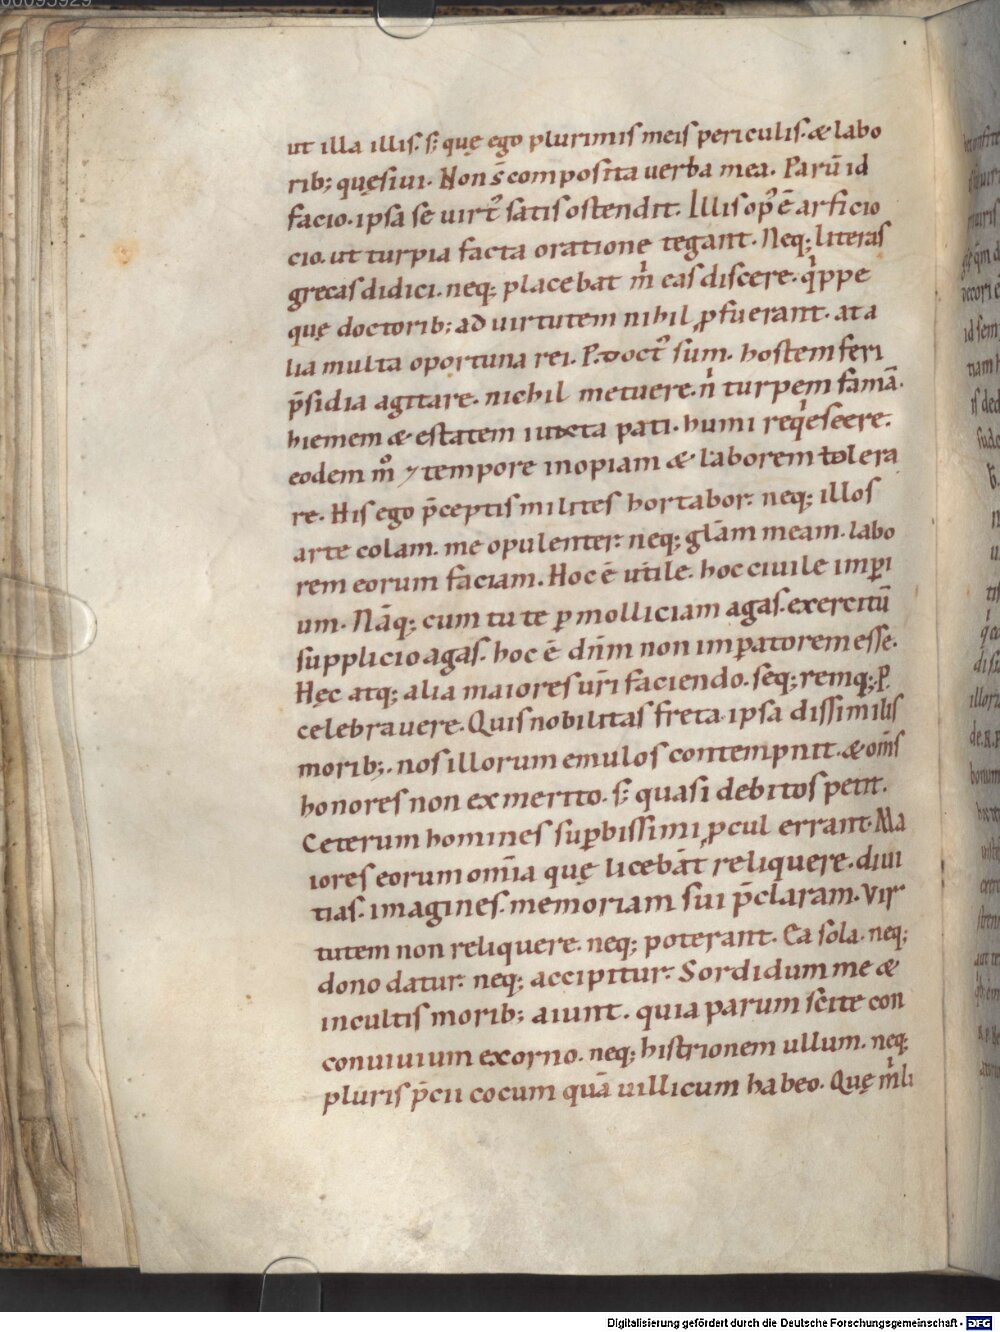 ut illa illis. s; quę ego plurimis meis periculis. & labo
rib; quęsiui. Non s̄ composita uerba mea. Parū id
facio. ipsa se uirt᷒ satis ostendit. Illis op᷒ ē arficio
cio. ut turpia facta oratione tegant. Neq; literas
grecas didici. neq; placebat m̍ eas discere. q̍ppe
quę doctorib; ad uirtutem nihil ꝓfuerant. at a
lia multa oportuna rei. P. doct᷒ sum. hostem feri
p̄sidia agitare. nichil metuere. n̍ turpem famā.
hiemem & estatem iuxta pati. humi req̍escere.
eodem m̊ ⁊ tempore inopiam & laborem tolera
re. His ego p̄ceptis milites hortabor. neq; illos
arte colam. me opulenter. neq; gl̄am meam. labo
rem eorum faciam. Hoc ē utile. hoc ciuile imꝑi
um. Nāq; cum tu te ꝑ molliciam agas. exercitū
supplicio agas. hoc ē dn̄m non imꝑatorem esse.
Hęc atq; alia maiores ur̄i faciendo. seq; remq; P.
celebrauere. Quis nobilitas freta. ipsa dissimilis
morib;. nos illorum emulos contempnit. & om̄s
honores non ex merito. s; quasi debitos petit.
Ceterum homines suꝑbissimi ꝓcul errant. Ma
iores eorum om̄ia quę licebāt reliquere. diui
tias. imagines. memoriam sui p̄claram. Vir
tutem non reliquere. neq; poterant. Ea sola. neq;
dono datur. neq; accipitur. Sordidum me &
incultis morib; aiunt. quia parum scite con
conuiuium exorno. neq; histrionem ullum. neq;
pluris p̄cii cocum quā uillicum habeo. Quę m̍ li
Digitalisierung gefördert durch die Deutsche Forschungsgemeinschaft - DFG